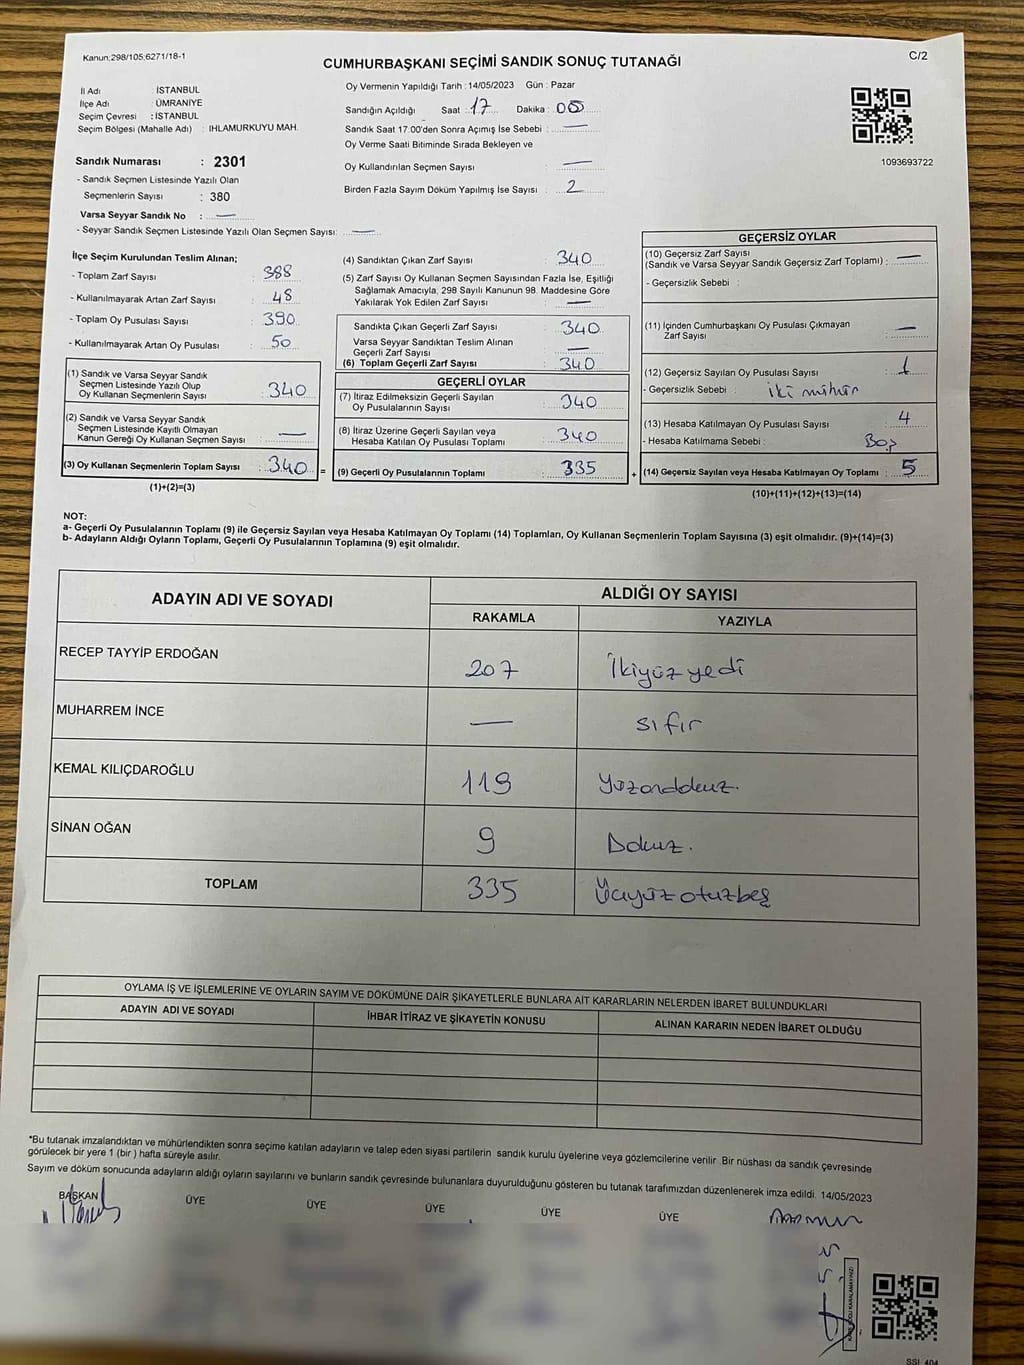 Kanun:298/105;6271/18-1
C/2
CUMHURBAŞKANI SEÇİMİ SANDIK SONUÇ TUTANAĞI
İl Adı : İSTANBUL
İlçe Adı : ÜMRANİYE
Seçim Çevresi : İSTANBUL
Seçim Bölgesi (Mahalle Adı) : IHLAMURKUYU MAH.
Sandık Numarası : 2301
- Sandık Seçmen Listesinde Yazılı Olan
Seçmenlerin Sayısı : 380
Varsa Seyyar Sandık No : —
- Seyyar Sandık Seçmen Listesinde Yazılı Olan Seçmen Sayısı: —
Oy Vermenin Yapıldığı Tarih :14/05/2023 Gün : Pazar
Sandığın Açıldığı Saat : 17 Dakika : 05
Sandık Saat 17:00'den Sonra Açımış İse Sebebi : —
Oy Verme Saati Bitiminde Sırada Bekleyen ve
Oy Kullandırılan Seçmen Sayısı : —
Birden Fazla Sayım Döküm Yapılmış İse Sayısı : 2
1093693722
İlçe Seçim Kurulundan Teslim Alınan;
- Toplam Zarf Sayısı : 388
- Kullanılmayarak Artan Zarf Sayısı : 48
- Toplam Oy Pusulası Sayısı : 390
- Kullanılmayarak Artan Oy Pusulası : 50
(1) Sandık ve Varsa Seyyar Sandık
Seçmen Listesinde Yazılı Olup
Oy Kullanan Seçmenlerin Sayısı : 340
(2) Sandık ve Varsa Seyyar Sandık
Seçmen Listesinde Kayıtlı Olmayan
Kanun Gereği Oy Kullanan Seçmen Sayısı : —
(3) Oy Kullanan Seçmenlerin Toplam Sayısı : 340 =
(1)+(2)=(3)
(4) Sandıktan Çıkan Zarf Sayısı : 340
(5) Zarf Sayısı Oy Kullanan Seçmen Sayısından Fazla İse, Eşitliği
Sağlamak Amacıyla, 298 Sayılı Kanunun 98. Maddesine Göre
Yakılarak Yok Edilen Zarf Sayısı : —
Sandıkta Çıkan Geçerli Zarf Sayısı : 340
Varsa Seyyar Sandıktan Teslim Alınan
Geçerli Zarf Sayısı : —
(6) Toplam Geçerli Zarf Sayısı : 340
GEÇERLİ OYLAR
(7) İtiraz Edilmeksizin Geçerli Sayılan
Oy Pusulalarının Sayısı : 340
(8) İtiraz Üzerine Geçerli Sayılan veya
Hesaba Katılan Oy Pusulası Toplamı : 340
(9) Geçerli Oy Pusulalarının Toplamı : 335 +
GEÇERSİZ OYLAR
(10) Geçersiz Zarf Sayısı
(Sandık ve Varsa Seyyar Sandık Geçersiz Zarf Toplamı) : —
- Geçersizlik Sebebi :
(11) İçinden Cumhurbaşkanı Oy Pusulası Çıkmayan
Zarf Sayısı : —
(12) Geçersiz Sayılan Oy Pusulası Sayısı : 1
- Geçersizlik Sebebi : iki mühür
(13) Hesaba Katılmayan Oy Pusulası Sayısı : 4
- Hesaba Katılmama Sebebi : Boş
(14) Geçersiz Sayılan veya Hesaba Katılmayan Oy Toplamı : 5
(10)+(11)+(12)+(13)=(14)
NOT:
a- Geçerli Oy Pusulalarının Toplamı (9) ile Geçersiz Sayılan veya Hesaba Katılmayan Oy Toplamı (14) Toplamları, Oy Kullanan Seçmenlerin Toplam Sayısına (3) eşit olmalıdır. (9)+(14)=(3)
b- Adayların Aldığı Oyların Toplamı, Geçerli Oy Pusulalarının Toplamına (9) eşit olmalıdır.
ADAYIN ADI VE SOYADI
ALDIĞI OY SAYISI
RAKAMLA YAZIYLA
RECEP TAYYİP ERDOĞAN 207 İkiyüzyedi
MUHARREM İNCE — sıfır
KEMAL KILIÇDAROĞLU 119 Yüzondokuz.
SİNAN OĞAN 9 Dokuz.
TOPLAM 335 Üçyüzotuzbeş
OYLAMA İŞ VE İŞLEMLERİNE VE OYLARIN SAYIM VE DÖKÜMÜNE DAİR ŞİKAYETLERLE BUNLARA AİT KARARLARIN NELERDEN İBARET BULUNDUKLARI
ADAYIN ADI VE SOYADI İHBAR İTİRAZ VE ŞİKAYETİN KONUSU ALINAN KARARIN NEDEN İBARET OLDUĞU
*Bu tutanak imzalandıktan ve mühürlendikten sonra seçime katılan adayların ve talep eden siyasi partilerin sandık kurulu üyelerine veya gözlemcilerine verilir. Bir nüshası da sandık çevresinde
görülecek bir yere 1 (bir) hafta süreyle asılır.
Sayım ve döküm sonucunda adayların aldığı oyların sayılarını ve bunların sandık çevresinde bulunanlara duyurulduğunu gösteren bu tutanak tarafımızdan düzenlenerek imza edildi. 14/05/2023
BAŞKAN ÜYE ÜYE ÜYE ÜYE ÜYE